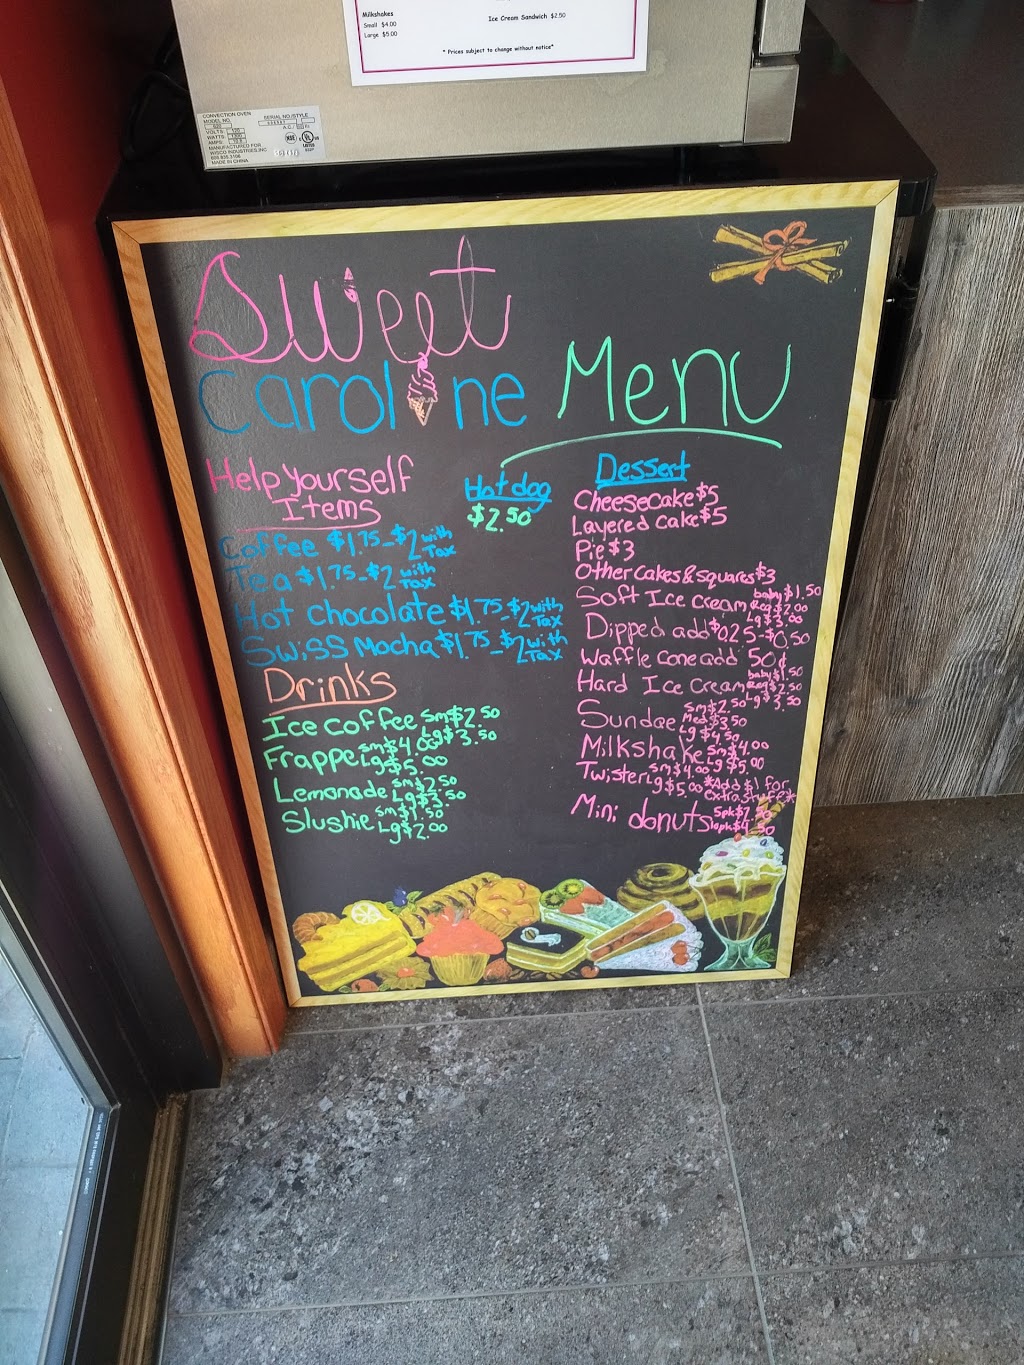 Milkshakes
Small $4.00
Large $5.00
Ice Cream Sandwich $2.50
* Prices subject to change without notice*
CONVECTION OVEN
MODEL NO.
SERIAL NO/STYLE
VOLTS 120
WATTS
AMPS
MANUFACTURED FOR
WISCO INDUSTRIES, INC
MADE IN CHINA
Sweet
Caroline Menu
Help yourself
Items
Coffee $1.75-$2 with Tax
Tea $1.75-$2 with Tax
Hot chocolate $1.75-$2 with Tax
Swiss Mocha $1.75-$2 with Tax
Drinks
Ice coffee sm $2.50 Lg $3.50
Frappe sm $4.00 Lg $5.00
Lemonade sm $2.50 Lg $3.50
Slushie sm $1.50 Lg $2.00
Hot dog
$2.50
Dessert
Cheesecake $5
Layered cake $5
Pie $3
Other cakes & squares $3
Soft Ice cream baby $1.50 Reg $2.00 Lg $3.00
Dipped add $0.25-$0.50
Waffle cone add 50¢
Hard Ice Cream baby $1.50 Reg $2.50 Lg $3.50
Sundae sm $2.50 Med $3.50 Lg $4.50
Milkshake sm $4.00 Lg $5.00
Twister sm $4.00 Lg $5.00 *Add $1 for extra stuff*
Mini donuts 5pk $2.50 10pk $4.50